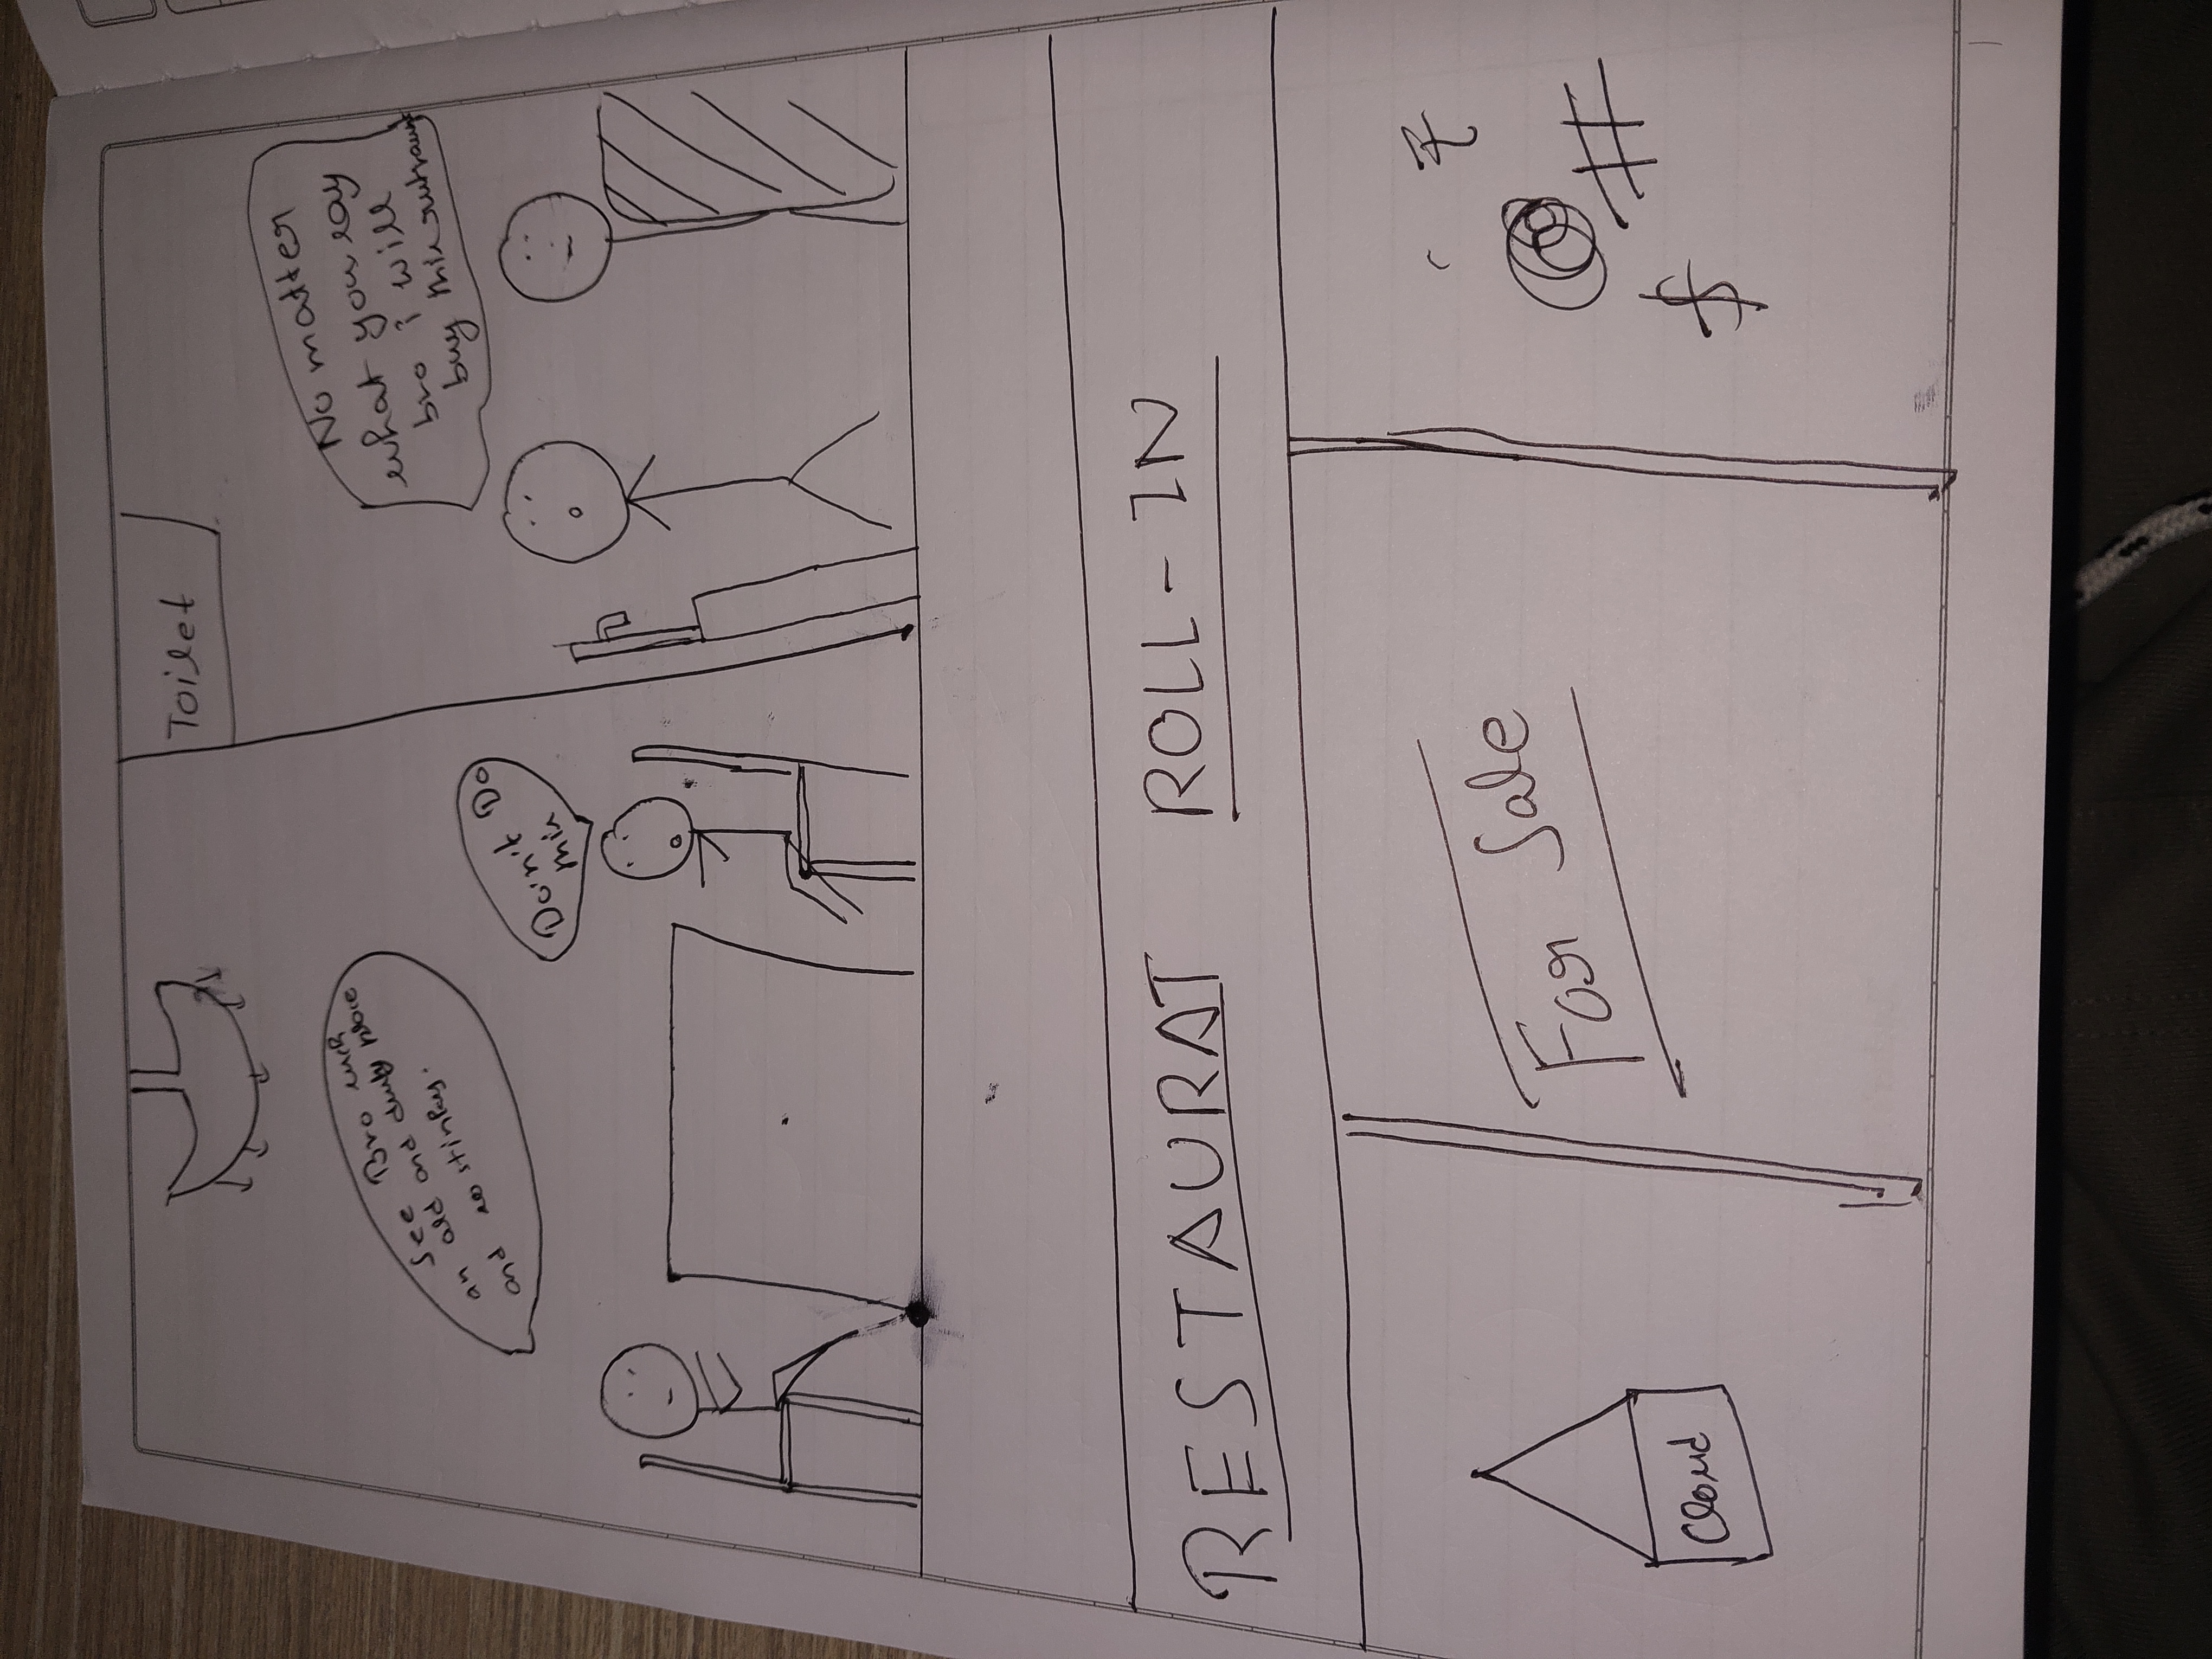 See Bro such
an old and dusty place
and so stinky.
Don't Do
this
Toilet
No matter
what you say
bro i will
buy this
RESTAURAT ROLL-IN
Cloud
For Sale
₹
#
$